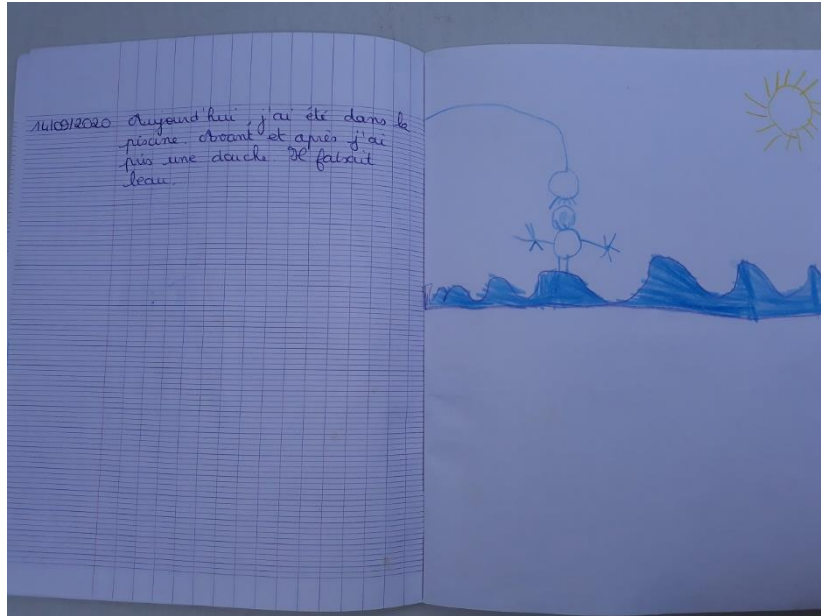 14/09/2020 Aujourd'hui, j'ai été dans la
piscine. Avant et après j'ai
pris une douche Il faisait
beau.